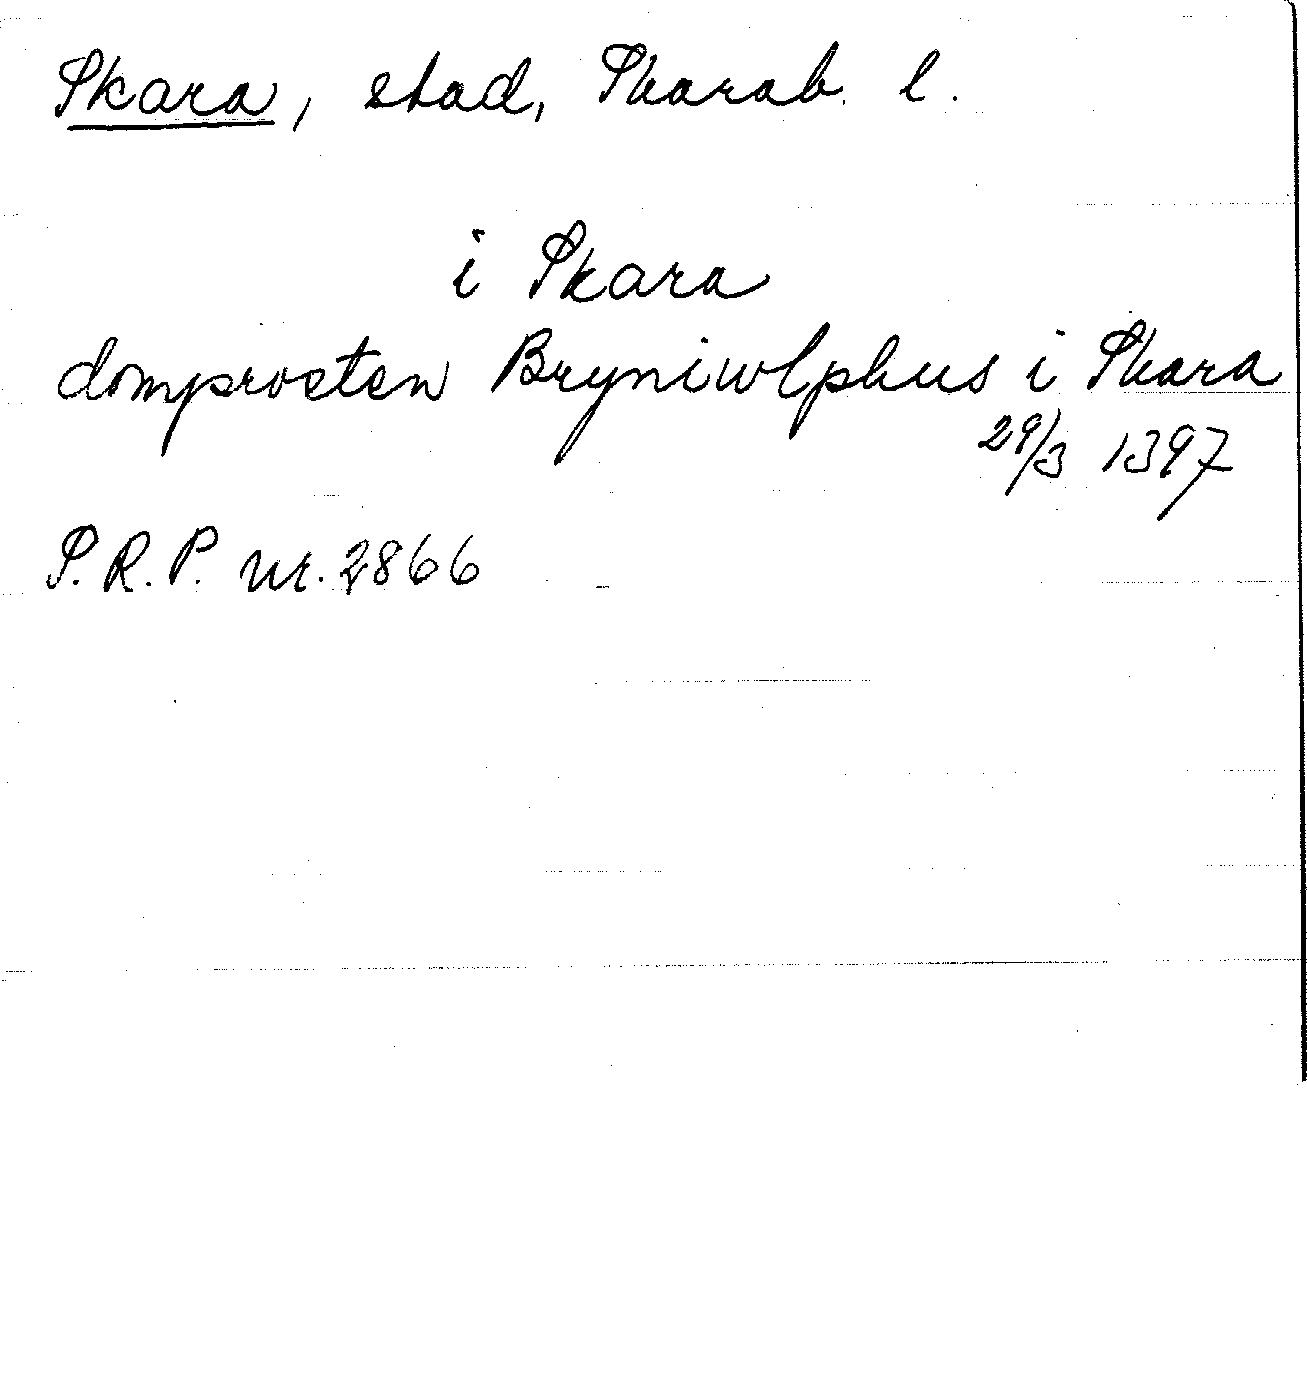 Skara, stad, Skarab. l.
i Skara
domprosten Bryniwlphus i Skara
29/3 1397
S.R.P. nr. 2866